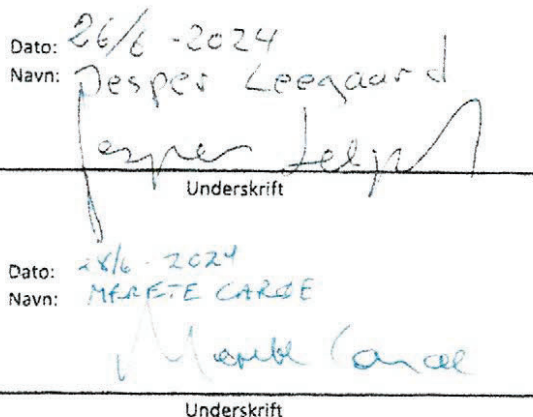 Dato: 26/6 - 2024
Navn: Jesper Leegaard
Jesper
Underskrift
Dato: 28/6 - 2024
Navn: MERETE CARØE
Merete Carøe
Underskrift